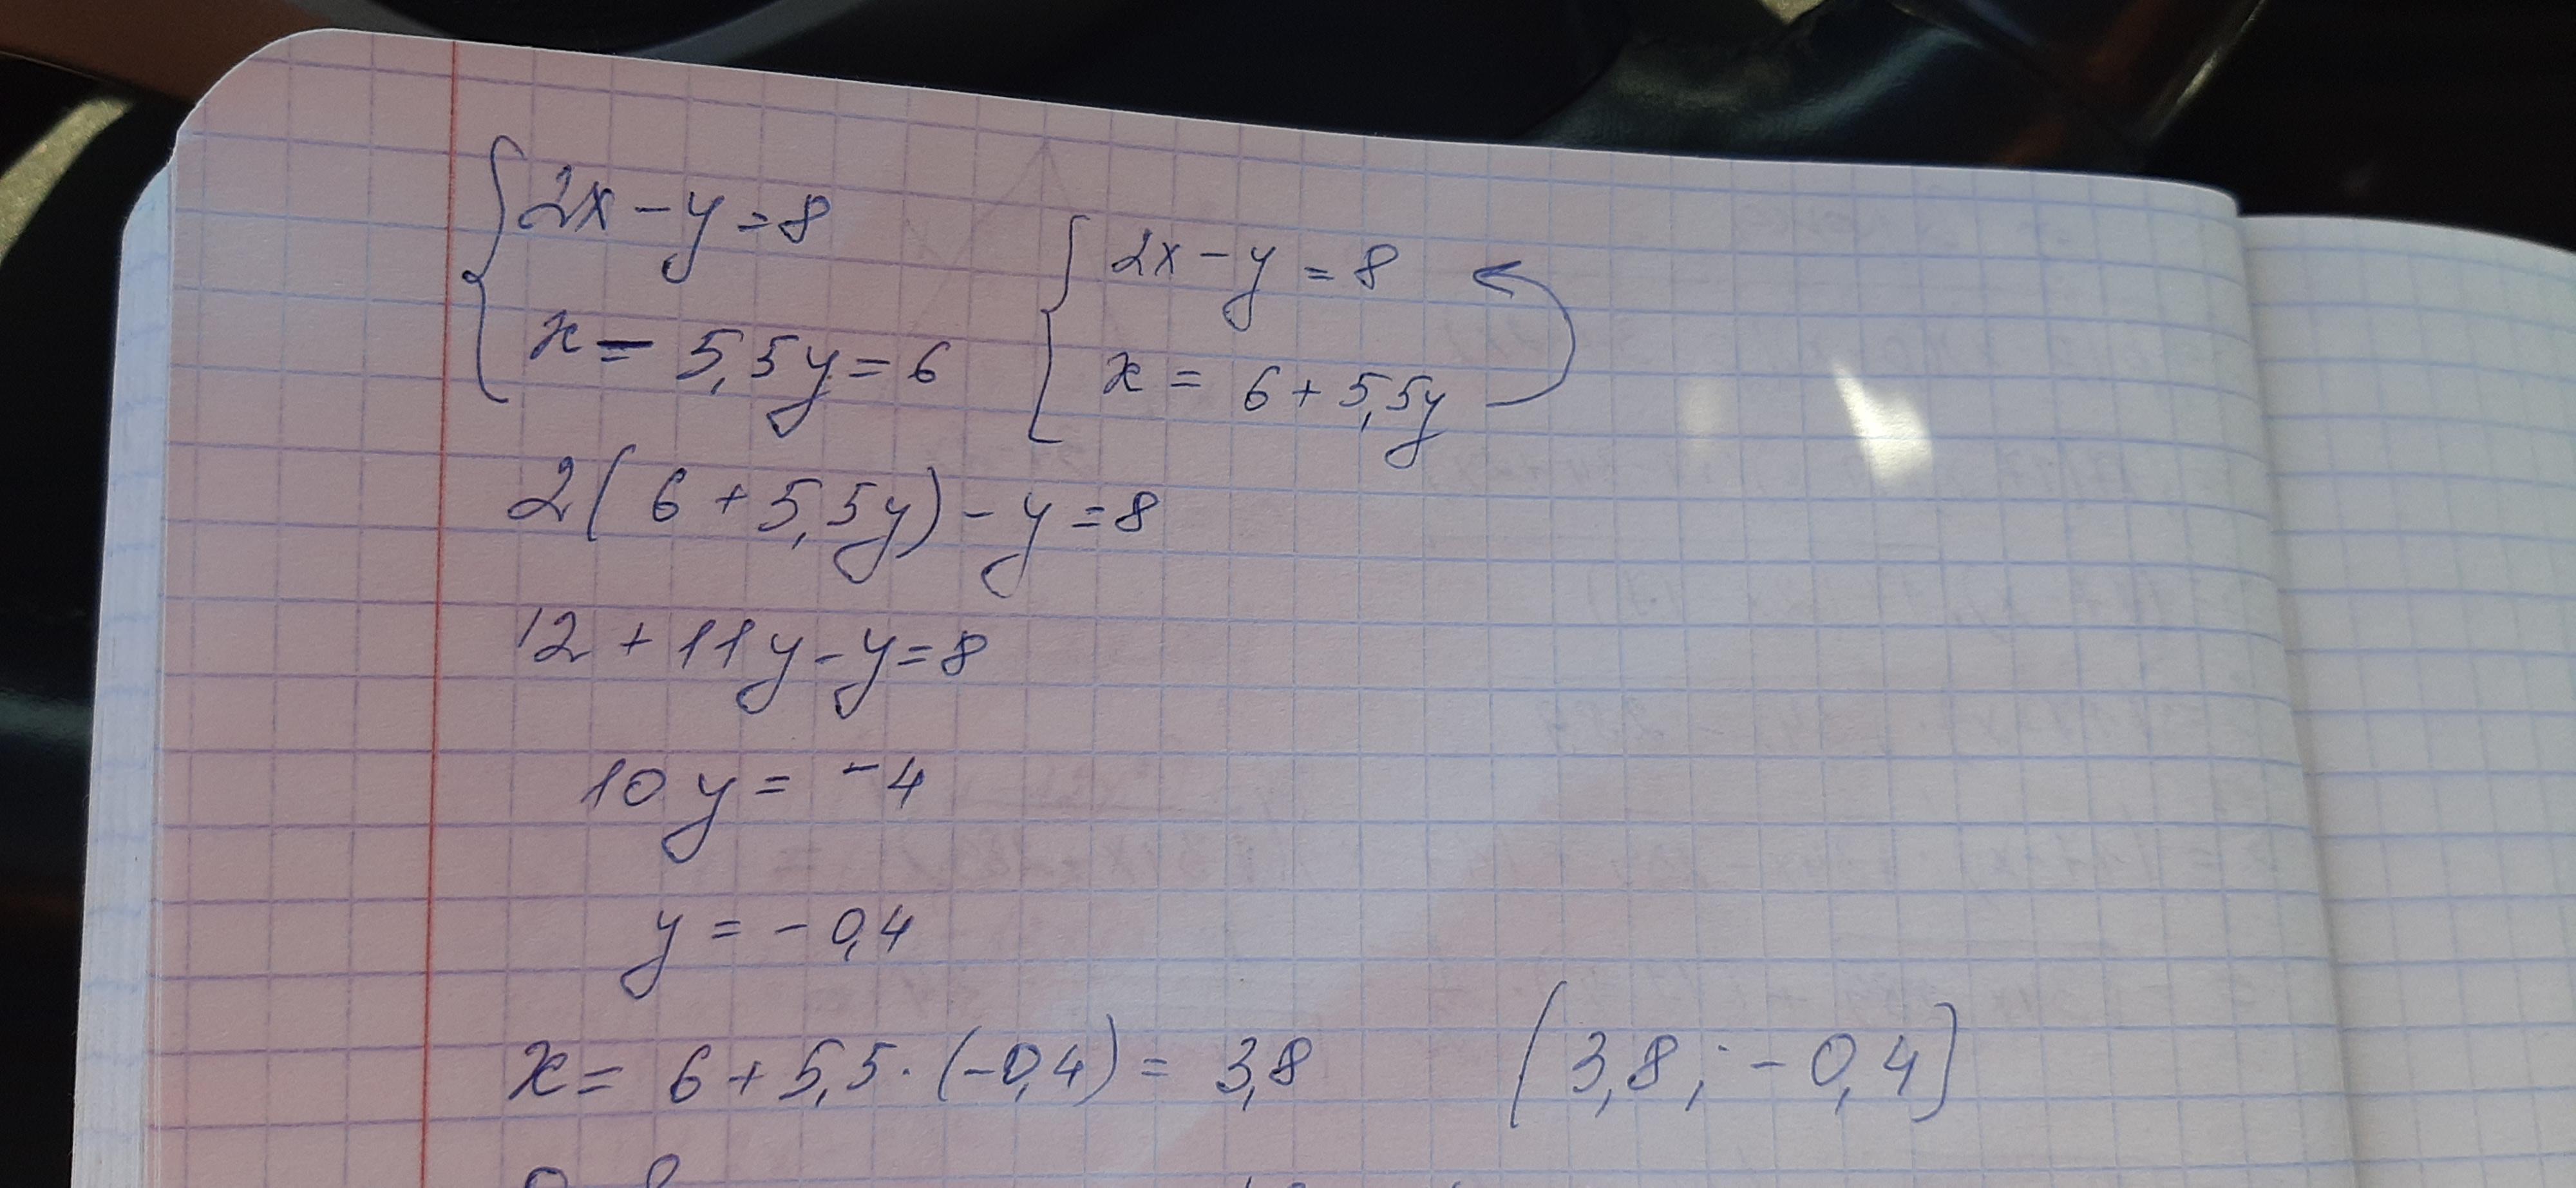 { 2x - y = 8
x = 5,5y = 6
{ 2x - y = 8
x = 6 + 5,5y
2(6 + 5,5y) - y = 8
12 + 11y - y = 8
10y = -4
y = -0,4
x = 6 + 5,5 · (-0,4) = 3,8 (3,8; -0,4)